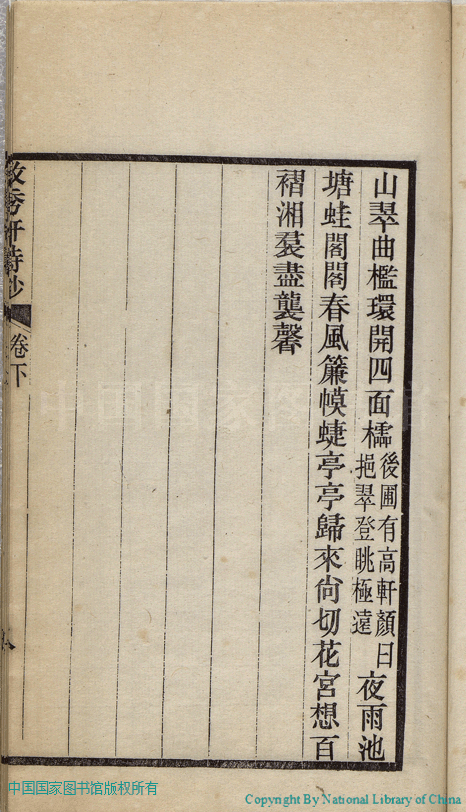 山翠曲檻環開四面櫺後圃有高軒顏曰挹翠登眺極遠夜雨池
塘蛙閣閣春風簾幙蜨亭亭歸來尙切花宮想百
褶湘裠盡襲馨
詩鈔
卷下
中国国家图书馆
中国国家图书馆版权所有
Copyright By National Library of China